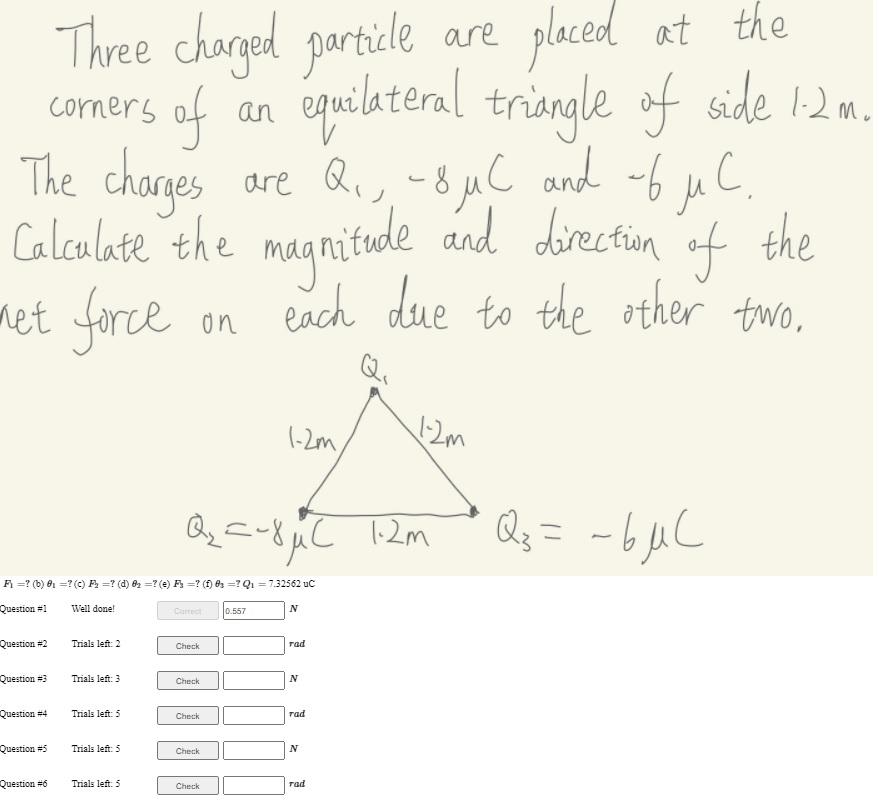 Three charged particle are placed at the
corners of an equilateral triangle of side 1.2 m.
The charges are Q₁, -8 μC and -6 μC.
Calculate the magnitude and direction of the
net force on each due to the other two.
Q₁
1.2m 1.2m
Q₂ = -8 μC 1.2m Q₃ = -6 μC
F₁ =? (b) θ₁ =? (c) F₂ =? (d) θ₂ =? (e) F₃ =? (f) θ₃ =? Q₁ = 7.32562 uC
Question #1 Well done! Correct 0.557 N
Question #2 Trials left: 2 Check rad
Question #3 Trials left: 3 Check N
Question #4 Trials left: 5 Check rad
Question #5 Trials left: 5 Check N
Question #6 Trials left: 5 Check rad